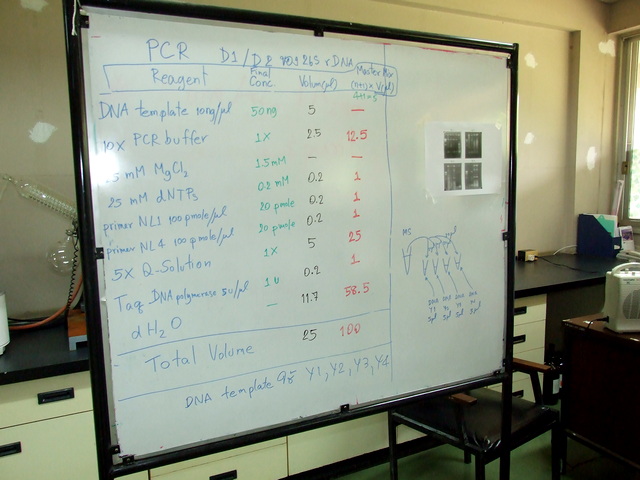 PCR D1/D2 26S rDNA
Reagent Final Conc Volume(µl) Master Mix (n+1) x V(µl)
4+1=5
DNA template 10ng/µl 50ng 5 —
10X PCR buffer 1X 2.5 12.5
25 mM MgCl2 1.5mM — —
25 mM dNTPs 0.2 mM 0.2 1
primer NL1 100 pmole/µl 20 pmole 0.2 1
primer NL4 100 pmole/µl 20 pmole 0.2 1
5X Q-Solution 1X 5 25
Taq DNA polymerase 5U/µl 1U 0.2 1
dH2O — 11.7 58.5
Total Volume 25 100
DNA template Y1, Y2, Y3, Y4
DNA DNA DNA DNA
Y1
5µl 5µl 5µl 5µl